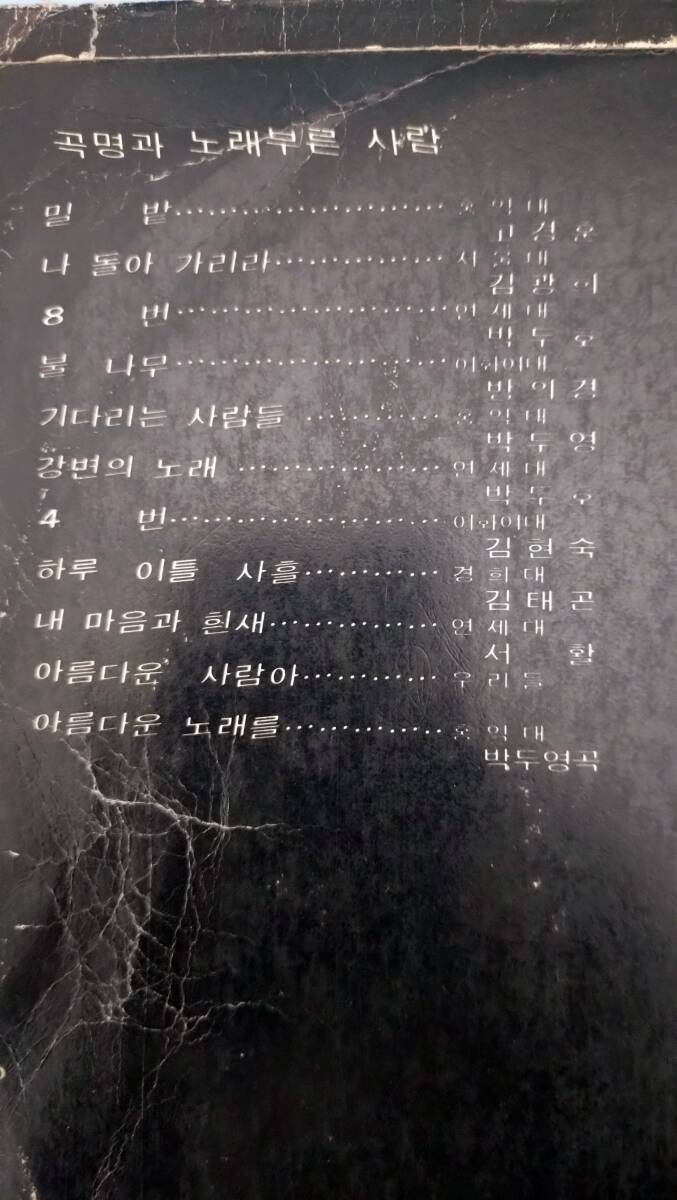 곡명과 노래부른 사람
밀 밭……………………홍 익 대
고 경 훈
나 돌아 가리라……………서 울 대
김 광 희
8 번……………………연 세 대
박 두 호
불 나무……………………이화여대
방 의 경
기다리는 사람들 …………홍 익 대
박 두 영
강변의 노래 ………………연 세 대
박 두 호
4 번……………………이화여대
김 현 숙
하루 이틀 사흘…………경 희 대
김 태 곤
내 마음과 흰새……………연 세 대
서 활
아름다운 사람아…………우 리 들
아름다운 노래를……………홍 익 대
박두영곡